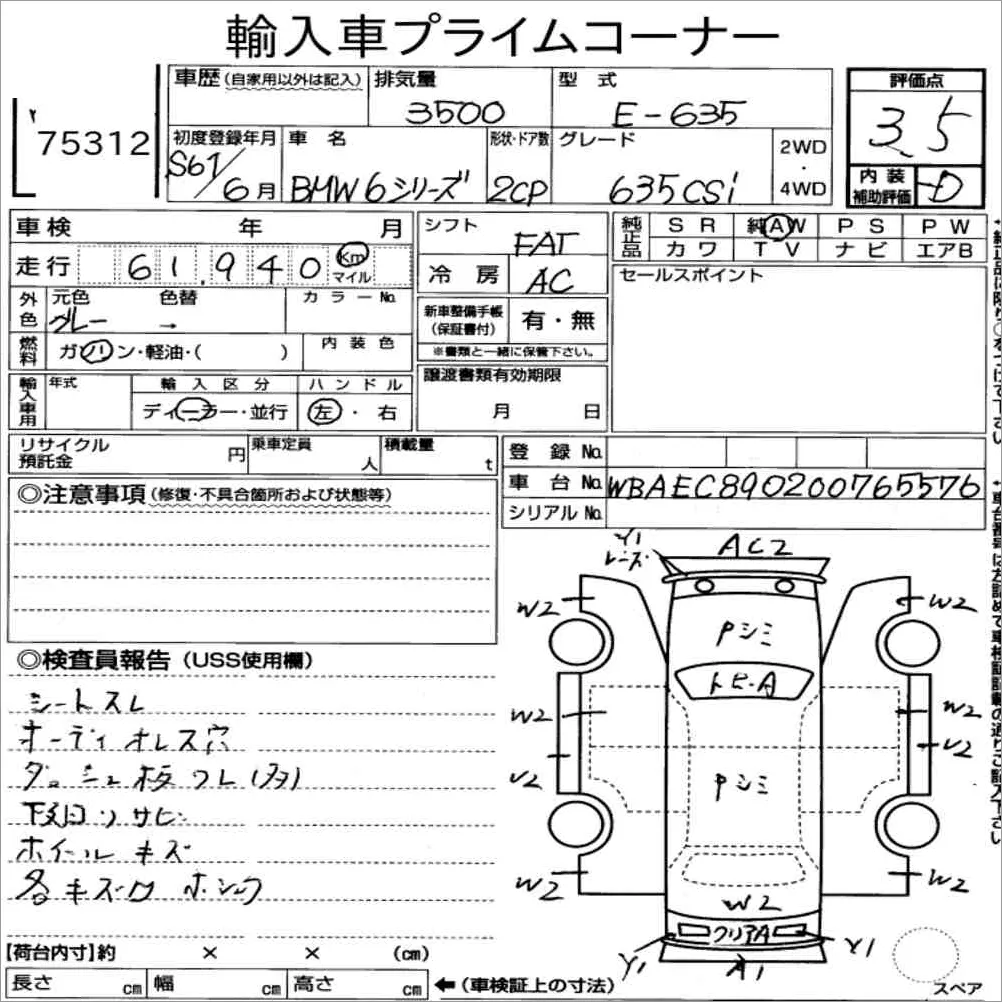 輸入車プライムコーナー
75312
車歴(自家用以外は記入) 排気量 型 式 評価点
3500 E-635 3.5
初度登録年月 車 名 形状・ドア数 グレード 2WD・4WD
S61/6月 BMW6シリーズ 2CP 635CSi
内装補助評価 D
車検 年 月
走行 61,940 Km マイル
外色 元色 色替 カラーNo.
グレー →
燃料 ガソリン・軽油・( ) 内装色
輸入車用 年式 輸入区分 ハンドル
ディーラー・並行 左・右
シフト FAT
冷房 AC
新車整備手帳(保証書付) 有・無
※書類と一緒に保管下さい。
譲渡書類有効期限
月 日
純正品 SR 純AW PS PW
カワ TV ナビ エアB
セールスポイント
リサイクル預託金 円 乗車定員 人 積載量 t
登録No.
車台No. WBAEC890200765576
シリアルNo.
◎注意事項(修復・不具合箇所および状態等)
◎検査員報告(USS使用欄)
シートスレ
オーディオレス穴
ダッシュ板ワレ(多)
下廻りサビ
ホイールキズ
各キズ
AC2
レーズ
W2 W2
Pシミ
トビ・A
W2 W2
U2 U2
Pシミ
W2 W2
W2
クリアA
Y1 A1 Y1
スペア
【荷台内寸】約 × × (cm)
長さ cm 幅 cm 高さ cm ←(車検証上の寸法)